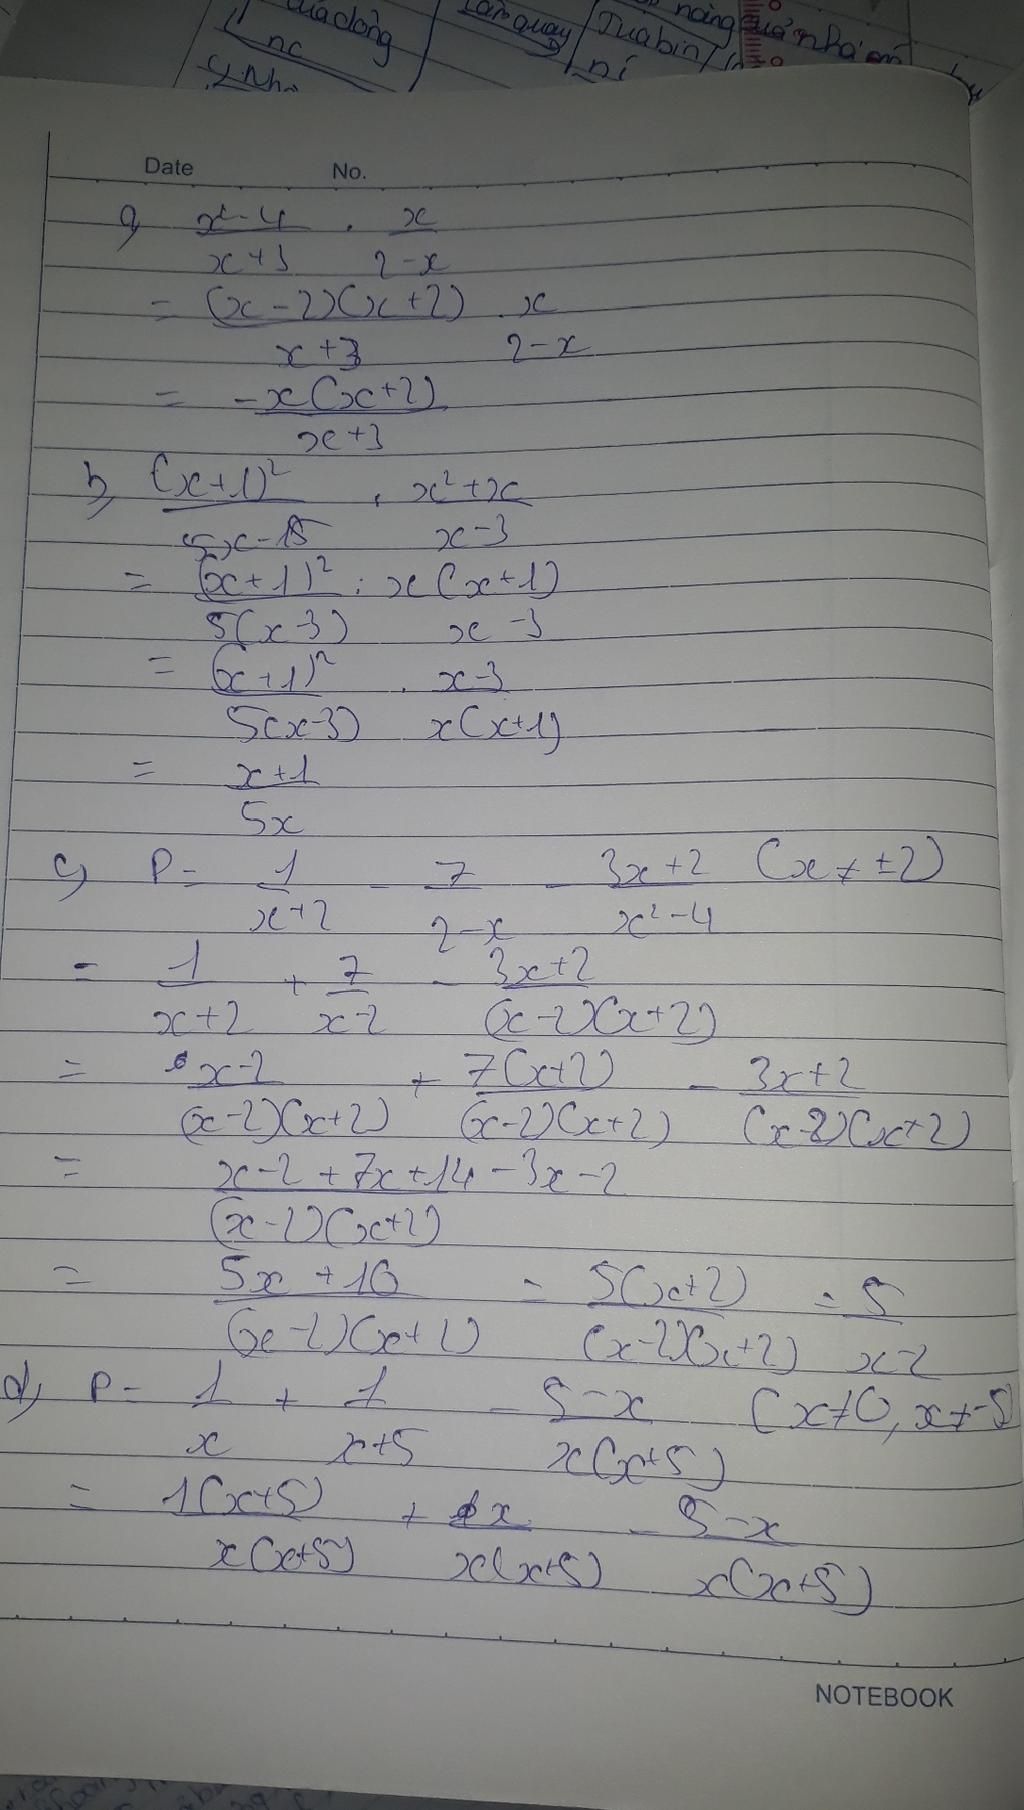 của dòng
nc
nóng quả nhà
Tuabin
Date No.
a, x²-4/x+3 . x/2-x
= (x-2)(x+2)/x+3 . x/2-x
= -x(x+2)/x+3
b, (x+1)²/5x-15 : x²+x/x-3
= (x+1)²/5(x-3) : x(x+1)/x-3
= (x+1)²/5(x-3) . x-3/x(x+1)
= x+1/5x
c, P= 1/x+2 - 7/2-x - 3x+2/x²-4 (x≠±2)
= 1/x+2 + 7/x-2 - 3x+2/(x-2)(x+2)
= x-2/(x-2)(x+2) + 7(x+2)/(x-2)(x+2) - 3x+2/(x-2)(x+2)
= x-2+7x+14-3x-2/(x-2)(x+2)
= 5x+10/(x-2)(x+2) = 5(x+2)/(x-2)(x+2) = 5/x-2
d, P= 1/x + 1/x+5 - 5-x/x(x+5) (x≠0, x≠-5)
= 1(x+5)/x(x+5) + x/x(x+5) - 5-x/x(x+5)
NOTEBOOK